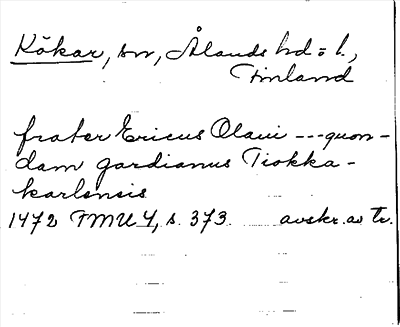 Kökar, sn, Ålands hd o l.,
Finland
frater Ericus Olaui --- quon-
dam gardianus Tiokka-
karlensis
1472 FMU 4, s. 373. avskr. av Tr.